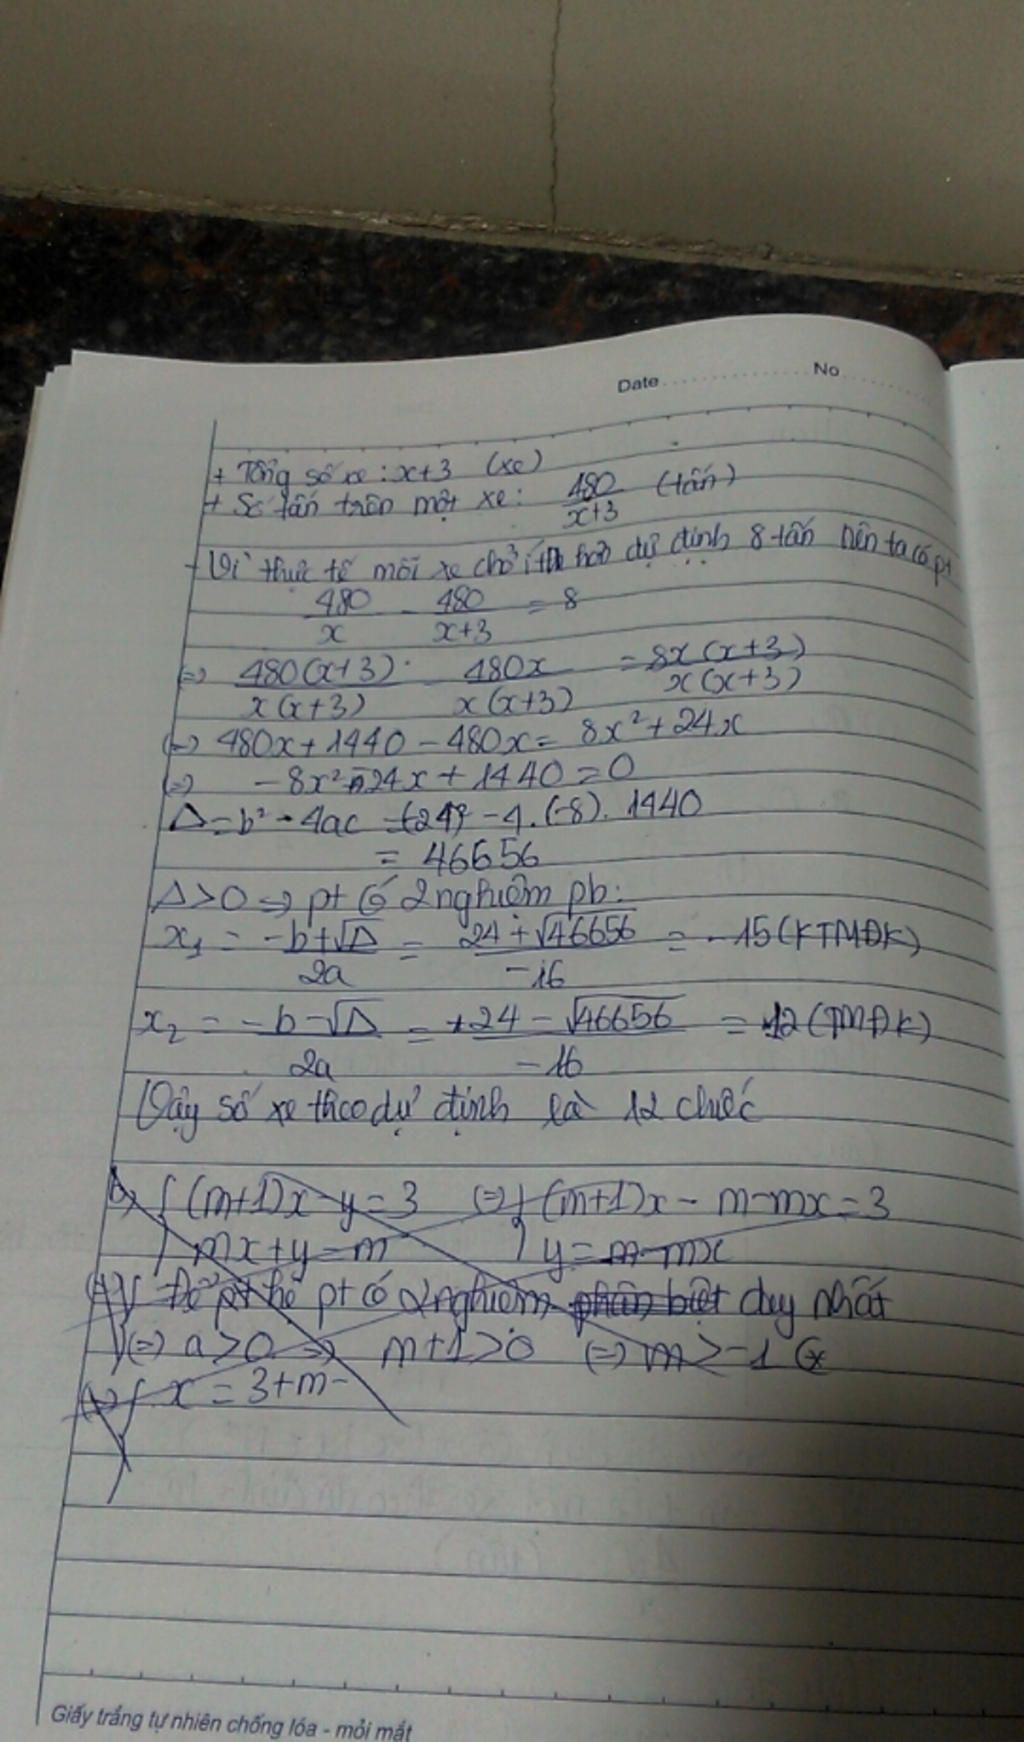 Date No
+ Tổng số xe : x+3 (xe)
+ Số tấn trên một xe: 480/(x+3) (tấn)
+ Vì thực tế mỗi xe chở ít hơn dự định 8 tấn nên ta có pt
480/x - 480/(x+3) = 8
(=) 480(x+3)/x(x+3) - 480x/x(x+3) = 8x(x+3)/x(x+3)
(=) 480x + 1440 - 480x = 8x² + 24x
(=) -8x² - 24x + 1440 = 0
Δ = b² - 4ac = (-24)² - 4.(-8).1440
= 46656
Δ > 0 => pt có 2 nghiệm pb:
x₁ = (-b+√Δ)/2a = (24+√46656)/-16 = -15 (KTMĐK)
x₂ = (-b-√Δ)/2a = (+24-√46656)/-16 = 12 (TMĐK)
Vậy số xe theo dự định là 12 chiếc
b, { (m+1)x - y = 3 (=) { (m+1)x - m - mx = 3
mx + y = m y = m - mx
Để pt hệ pt có 2 nghiệm phân biệt duy nhất
(=) a > 0 => m+1 > 0 (=) m > -1
(=) { x = 3 + m
Giấy trắng tự nhiên chống lóa - mỏi mắt